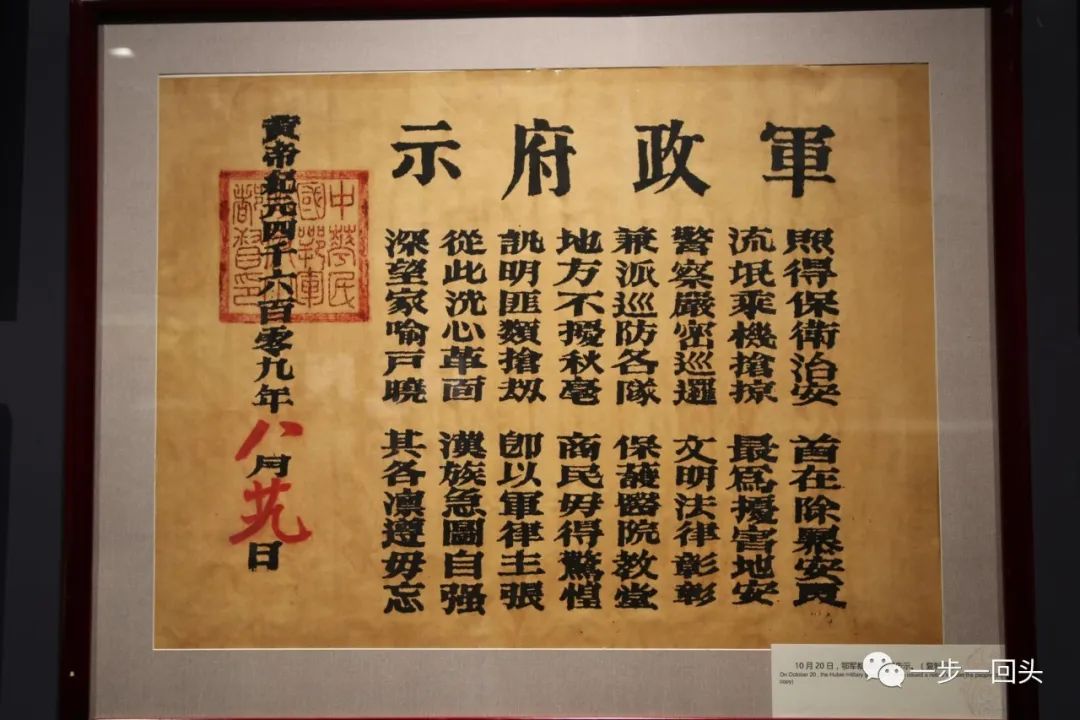 軍政府示
照得保衛治安 首在除暴安良
流氓乘機搶掠 最爲擾害地安
警察嚴密巡邏 文明法律彰彰
兼派巡防各隊 保護醫院教堂
地方不擾秋毫 商民毋得驚惶
訊明匪類搶刼 卽以軍律主張
從此洗心革面 漢族急圖自强
深望家喻戶曉 其各凛遵毋忘
黃帝紀元四千六百零九年八月廿九日
中華民
國鄂軍
都督印
10月20日，鄂军 示。（复制
On October 20, the Hubei military issued a the people
copy)
一步一回头